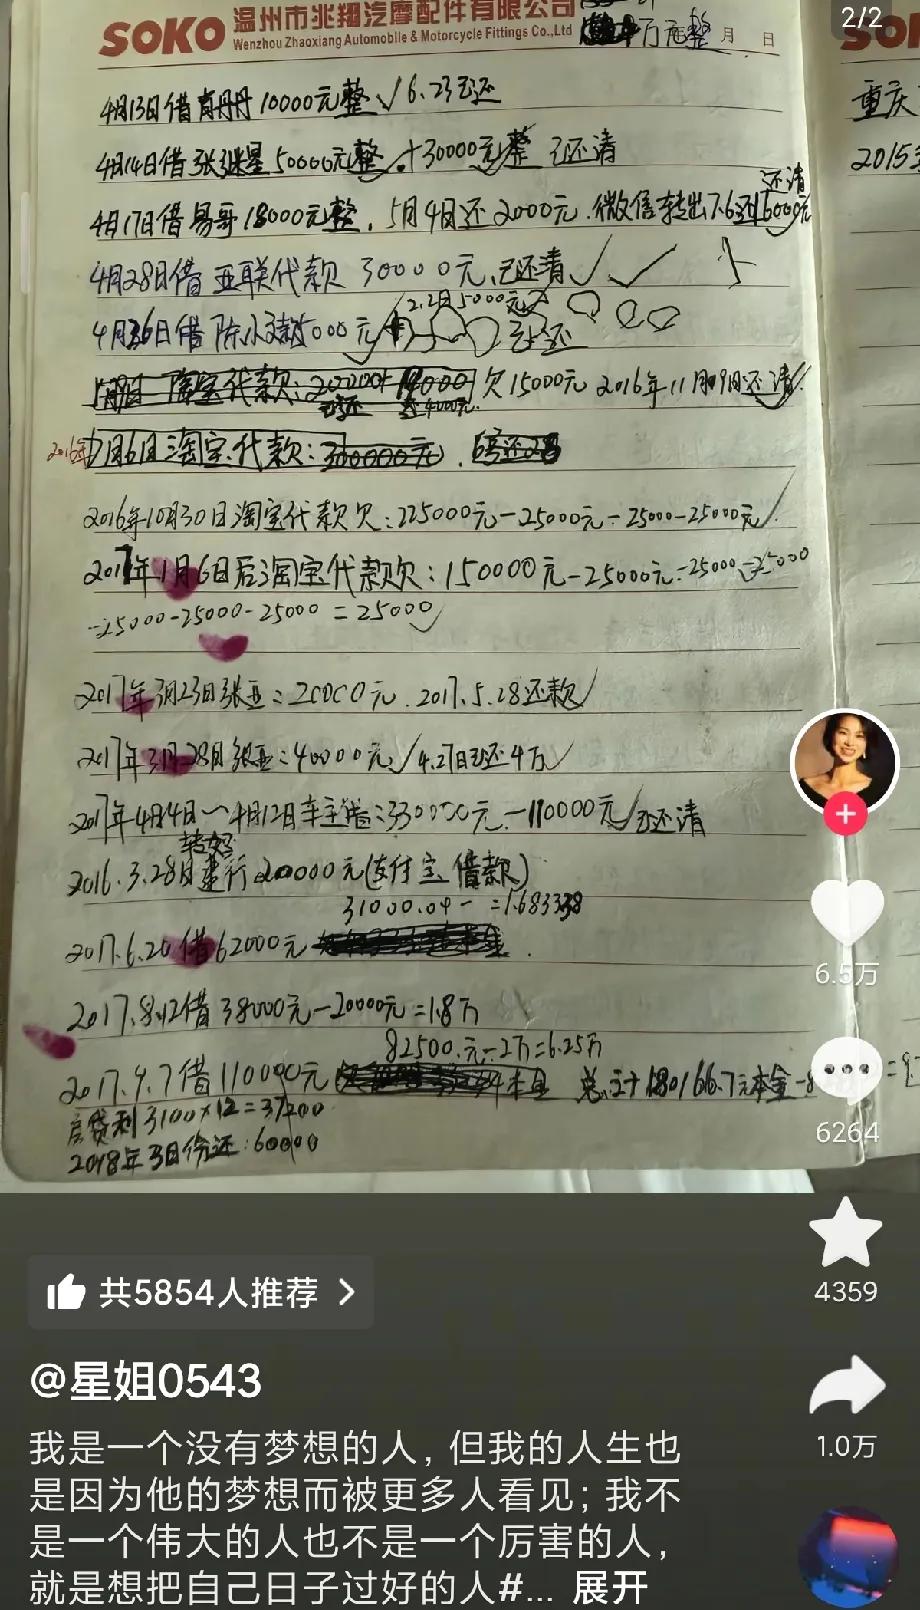 2/2
SOKO
温州市兆翔汽摩配件有限公司
Wenzhou Zhaoxiang Automobile & Motorcycle Fittings Co.,Ltd
万元整 月 日
SOK
重庆
2015
4月13日借肖丹丹10000元整√6.23已还
4月14日借张继星50000元整√+30000元整 已还清
还清
4月17日借易哥18000元整,5月4日还2000元.微信转出7.6还16000元
4月28日借亚联代款30000元,已还清√√
2.2月5000元
4月 日借陈小 000元 已还
代款: 欠15000元 2016年11月09日还清√
还4000元
2016年7月6日淘宝代款:300000元.
2016年10月30日淘宝代款欠:225000元-25000元-25000-25000元√
2017年1月6日后淘宝代款欠:150000元-25000元-25000-25000
-25000-25000-25000=25000√
2017年3月23日张亚:20000元.2017.5.28还款√
2017年3月28日张亚:40000元√4.27日已还4万√
2017年4月4日~4月12日车主借:330000元-110000元√已还清
转妈
2016.3.28日建行200000元(支付宝借款)
31000.04- =1.683338
2017.6.20借62000元
2017.8.12借38000元-20000元=1.8万
82500.元-2万=6.25万
2017.9.7借110000元 总计180166.7元本金-8
房贷利3100×12=37200
2018年3日份还:60000
6.5万
6264
共5854人推荐 >
4359
@星姐0543
我是一个没有梦想的人，但我的人生也
是因为他的梦想而被更多人看见；我不
是一个伟大的人也不是一个厉害的人，
就是想把自己日子过好的人#... 展开
1.0万